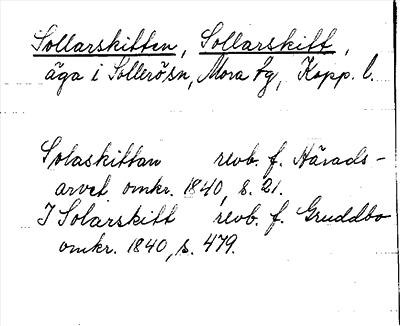 Sollarskitten, Sollarskitt,
äga i Sollerö sn, Mora tg, Kopp. l.
Solaskittan revb. f. Härads-
arvet omkr. 1840, s. 21.
I Solarskitt revb. f. Gruddbo
omkr. 1840, s. 479.